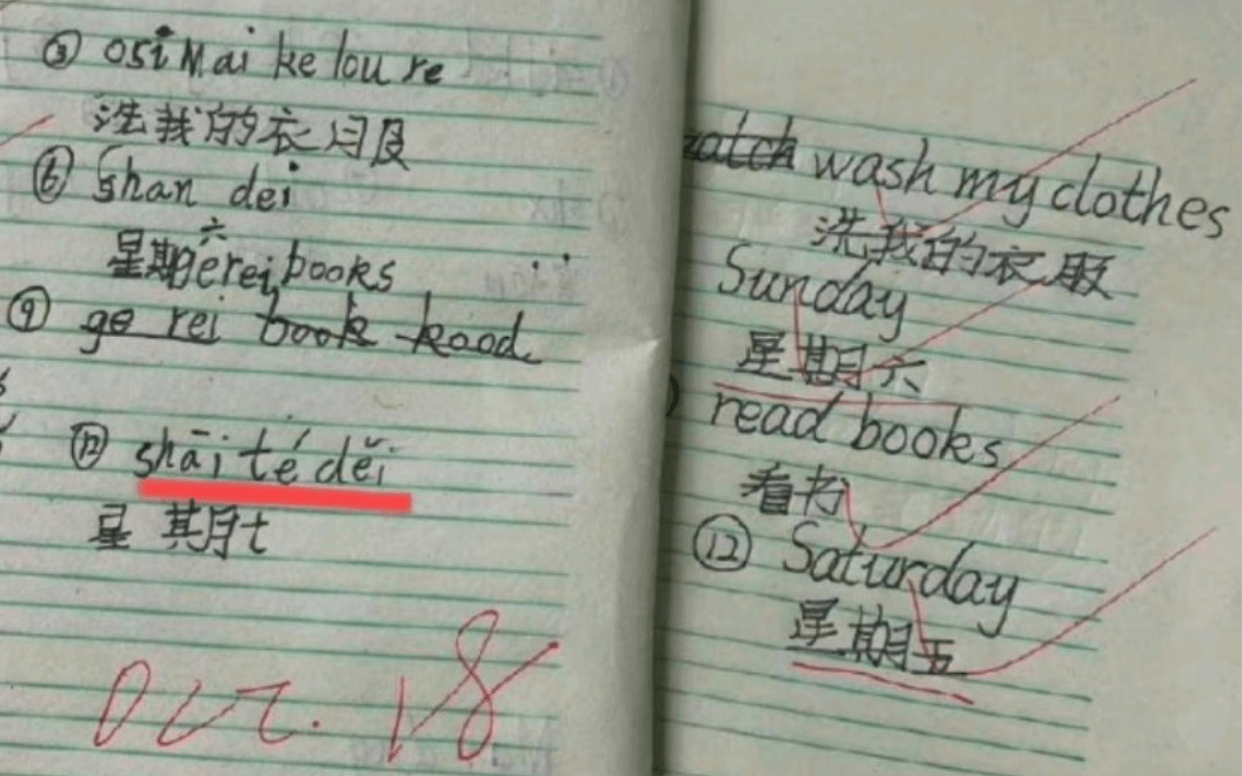 ③ osi Mai ke lou re
洗我的衣月艮
⑥ shan dei
六
星期 erei books
⑨ ge rei book kood
⑫ shāi té děi
星 期七
Oct. 18
watch wash my clothes
洗我的衣服
Sunday
星期六
) read books
看书
⑫ Saturday
星期五